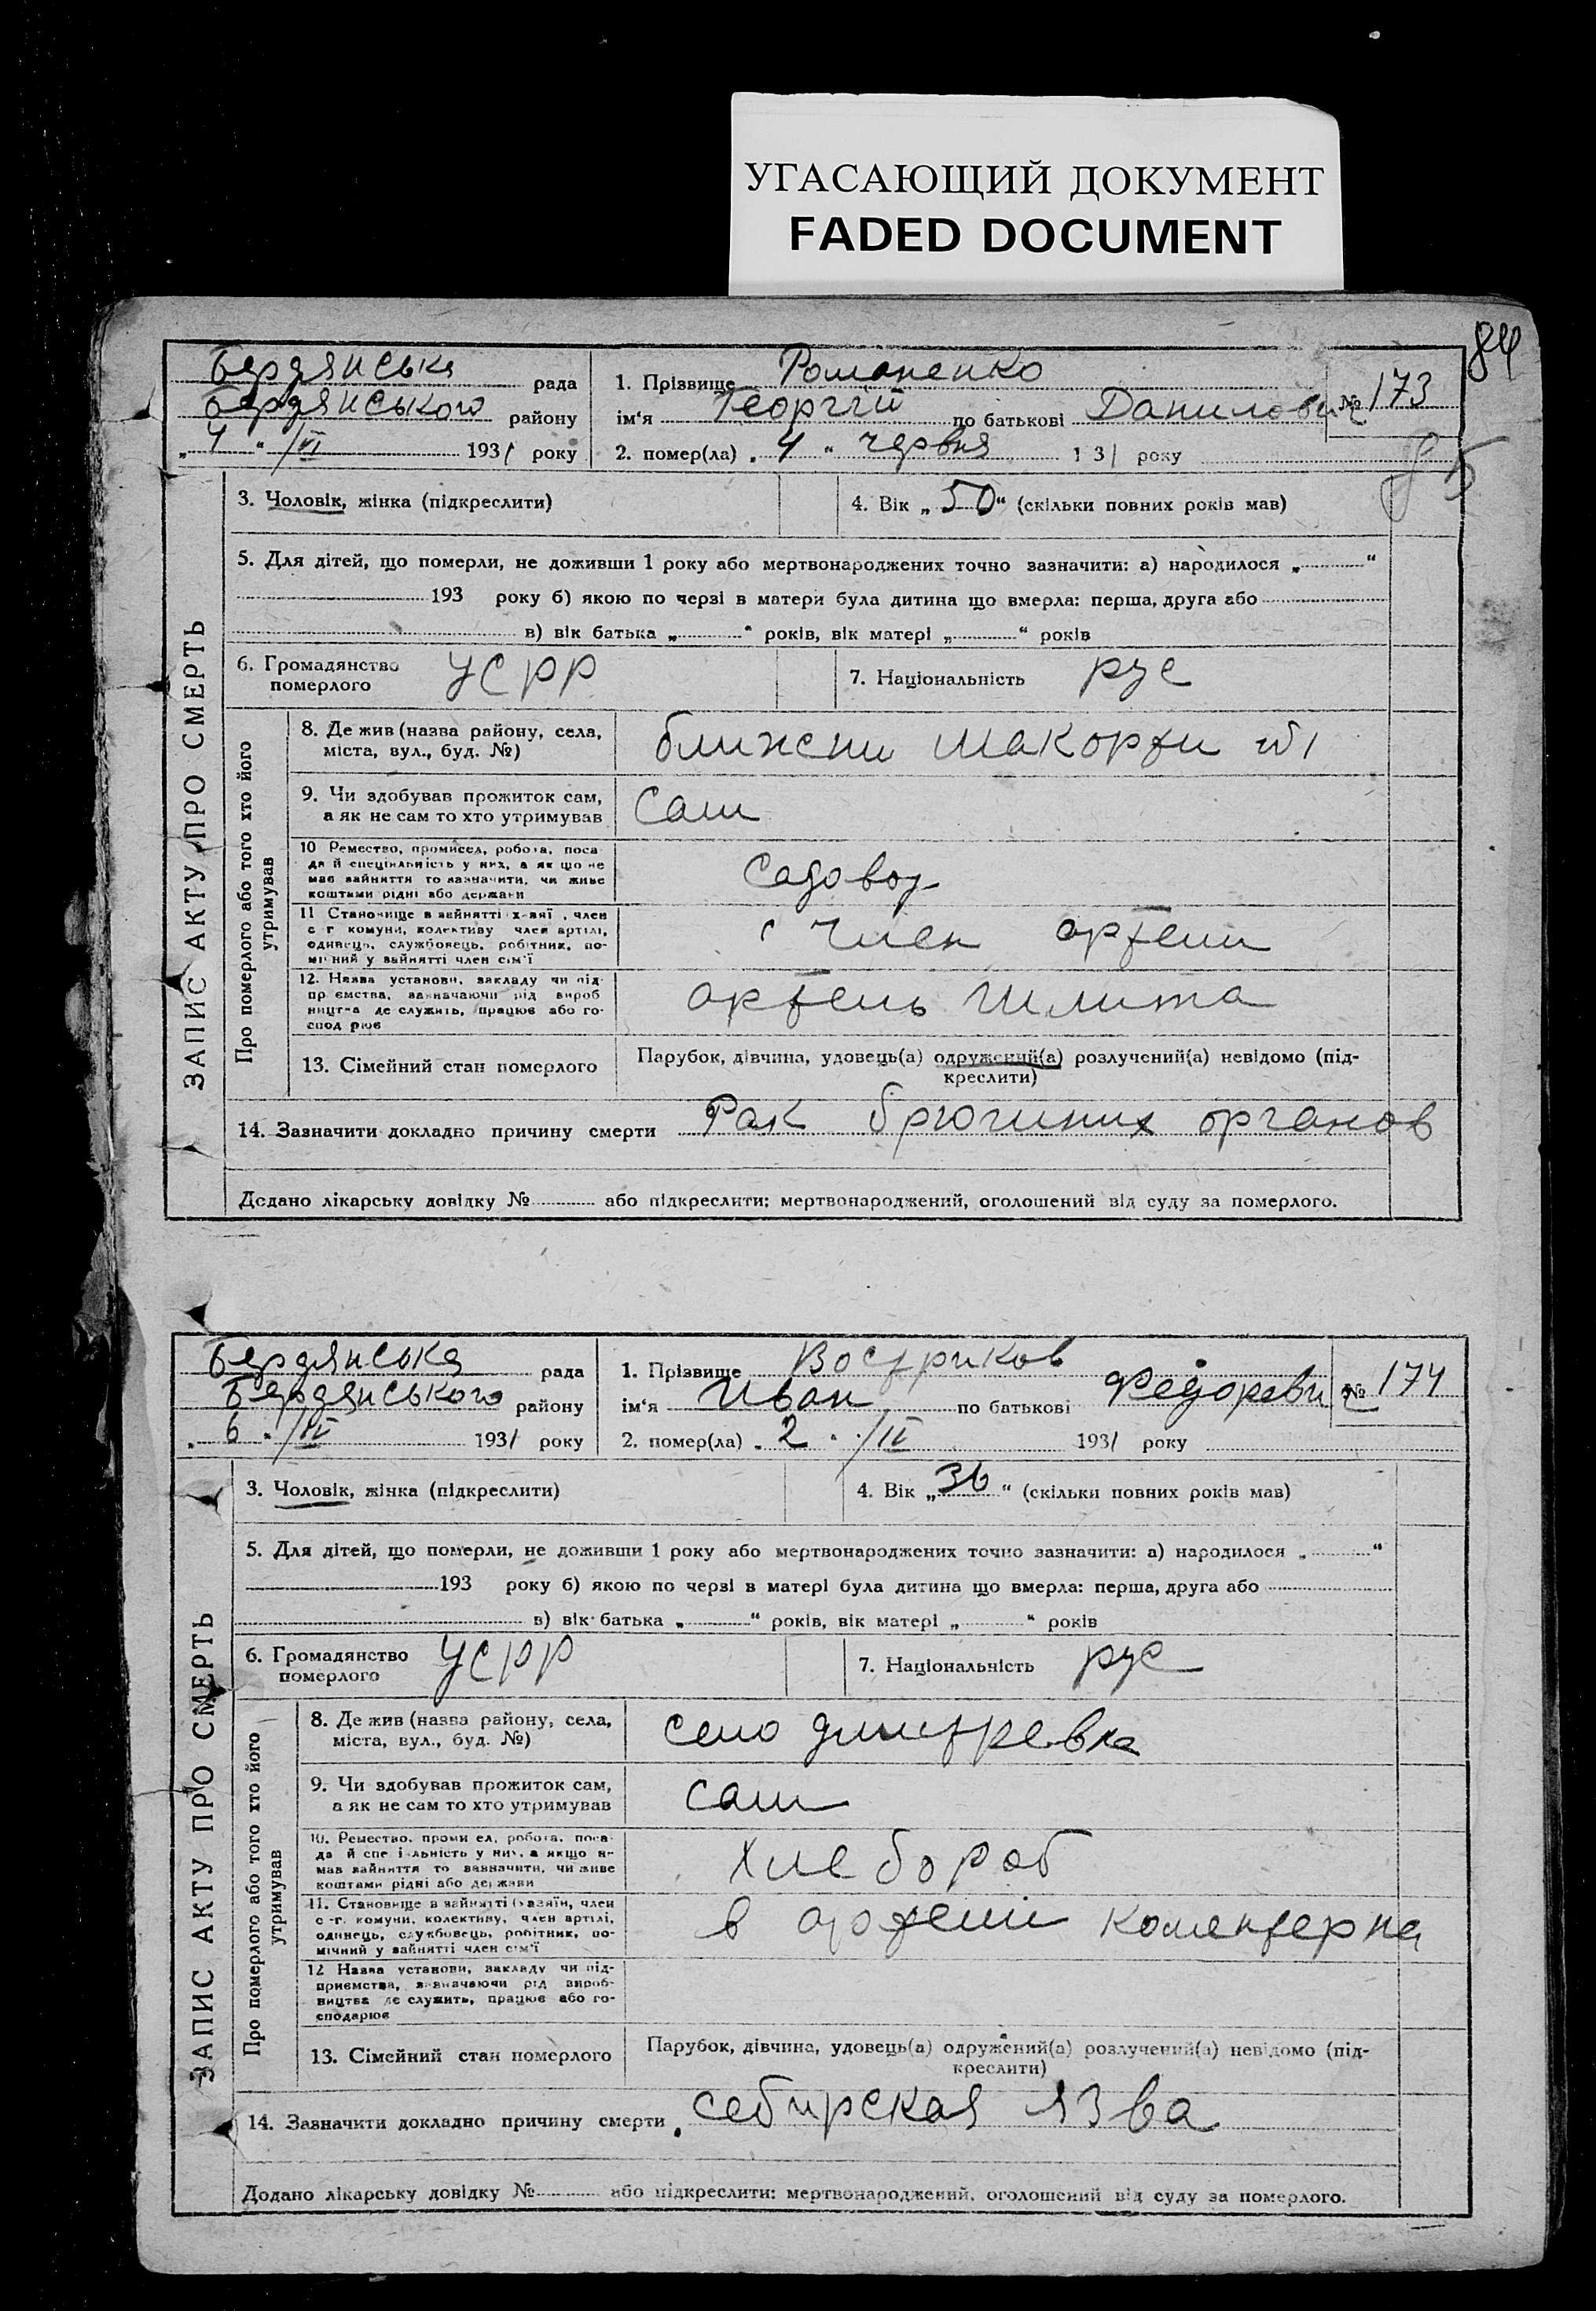 УГАСАЮЩИЙ ДОКУМЕНТ
FADED DOCUMENT
84
85
Бердянська рада
Бердянського району
„4“ /VI 1931 року
1. Прізвище Романенко
ім‘я Георгій по батькові Данилович
№ 173
2. помер(ла) „4“ червня 1 31 року
3. Чоловік, жінка (підкреслити)
4. Вік „50“ (скільки повних років мав)
5. Для дітей, що померли, не доживши 1 року або мертвонароджених точно зазначити: а) народилося „ “
193 року б) якою по черзі в матери була дитина що вмерла: перша, друга або
в) вік батька „ “ років, вік матері „ “ років
6. Громадянство
померлого УСРР
7. Національність рус
ЗАПИС АКТУ ПРО СМЕРТЬ
Про померлого або того хто його
утримував
8. Де жив (назва району, села,
міста, вул., буд. №)
9. Чи здобував прожиток сам,
а як не сам то хто утримував
Сам
10 Ремество, промисел, робота, поса-
да й спеціяльність у них, а як що не
має зайняття то зазначити, чи живе
коштами рідні або держави
садовод
11 Становище в зайнятті х-зяї , член
с г комуни, колективу член артілі,
одинець, службовець, робітник, по-
мічний у зайнятті член сім'ї
член артели
12. Назва установи, закладу чи під-
пр ємства, зазначаючи рід вироб
ництва де служить, працює або го-
спод рює
артель
13. Сімейний стан померлого
Парубок, дівчина, удовець(а) одружений(а) розлучений(а) невідомо (під-
креслити)
14. Зазначити докладно причину смерти Рак брюшних органов
Додано лікарську довідку № або підкреслити: мертвонароджений, оголошений від суду за померлого.
Бердянська рада
Бердянського району
„6“ /VI 1931 року
1. Прізвище Востриков
ім‘я Иван по батькові Федореви
№ 174
2. помер(ла) „2“ 1931 року
3. Чоловік, жінка (підкреслити)
4. Вік „36“ (скільки повних років мав)
5. Для дітей, що померли, не доживши 1 року або мертвонароджених точно зазначити: а) народилося „ “
193 року б) якою по черзі в матері була дитина що вмерла: перша, друга або
в) вік батька „ “ років, вік матері „ “ років
6. Громадянство
померлого УСРР
7. Національність рус
ЗАПИС АКТУ ПРО СМЕРТЬ
Про померлого або того хто його
утримував
8. Де жив (назва району, села,
міста, вул., буд. №)
село дмитревка
9. Чи здобував прожиток сам,
а як не сам то хто утримував
сам
10. Ремество, проми ел, робота, поса-
да й спе і льність у них, а якщо н-
має зайняття то зазначити, чи живе
коштами рідні або держави
хлебороб
11. Становище в зайнятті (хазяїн, член
с -г. комуни, колективу, член артілі,
одинець, службовець, робітник, по-
мічний у зайнятті член сім'ї
в артели коминтерна
12 Назва установи, закладу чи під-
приємства, зазначаючи рід вироб-
ництва де служить, працює або го-
сподарює
13. Сімейний стан померлого
Парубок, дівчина, удовець(а) одружений(а) розлучений(а) невідомо (під-
креслити)
14. Зазначити докладно причину смерти себирская язва
Додано лікарську довідку № або підкреслити: мертвонароджений, оголошений від суду за померлого.